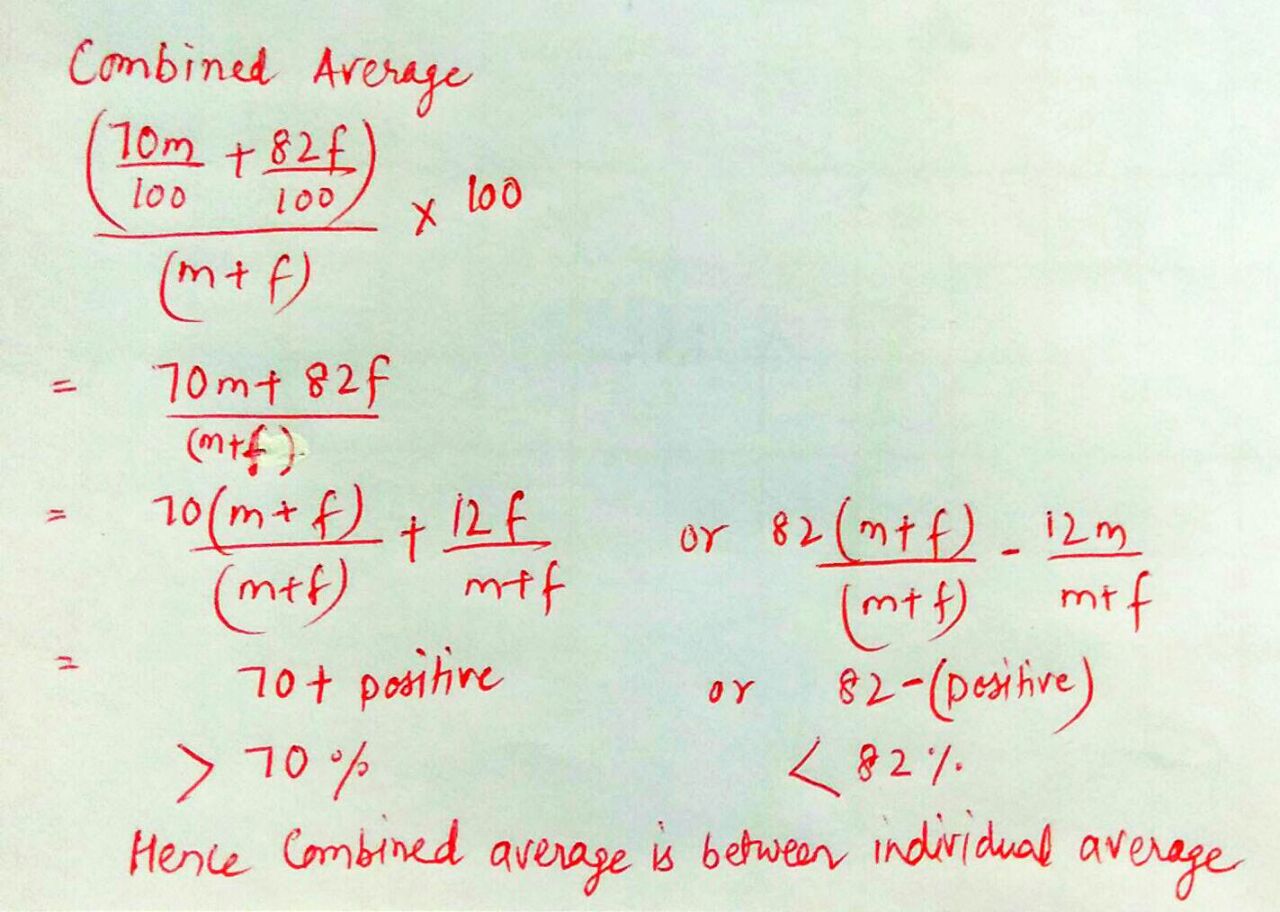 Combined Average
(70m/100 + 82f/100)/(m+f) × 100
= 70m+82f/(m+f)
= 70(m+f)/(m+f) + 12f/m+f or 82(m+f)/(m+f) - 12m/m+f
= 70+ positive or 82-(positive)
> 70% < 82%
Hence Combined average is between individual average